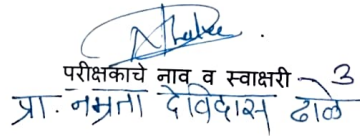 परीक्षकाचे नाव व स्वाक्षरी - 3
प्रा. नम्रता देविदास ढाले